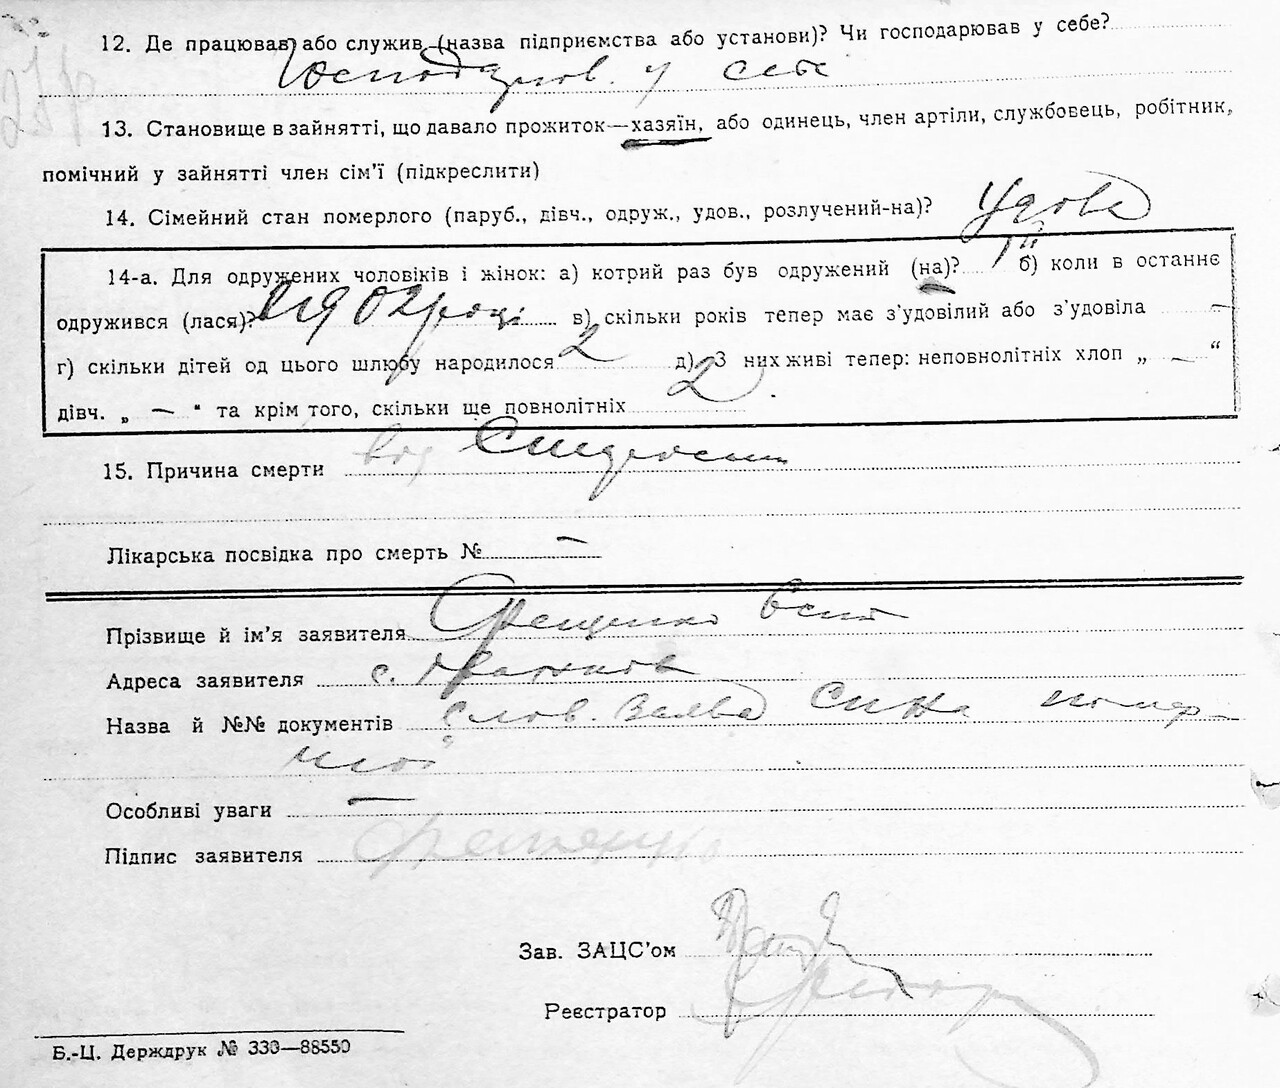 12. Де працював або служив (назва підприємства або установи)? Чи господарював у себе?
Господарюв. у себе
13. Становище в зайнятті, що давало прожиток—хазяїн, або одинець, член артіли, службовець, робітник,
помічний у зайнятті член сім'ї (підкреслити)
14. Сімейний стан померлого (паруб., дівч., одруж., удов., розлучений-на)? Удова
14-а. Для одружених чоловіків і жінок: а) котрий раз був одружений (на)? б) коли в останнє
одружився (лася)? 1902 році в) скільки років тепер має з'удовілий або з'удовіла —
г) скільки дітей од цього шлюбу народилося 2 д) З них живі тепер: неповнолітніх хлоп „ — “
дівч. „ — “ та крім того, скільки ще повнолітніх 2.
15. Причина смерти від
Лікарська посвідка про смерть № —
Прізвище й ім'я заявителя
Адреса заявителя с.
Назва й №№ документів Слов. Заява Сина помер-
шої
Особливі уваги —
Підпис заявителя
Зав. ЗАЦС'ом
Реєстратор
Б.-Ц. Держдрук № 330—88550